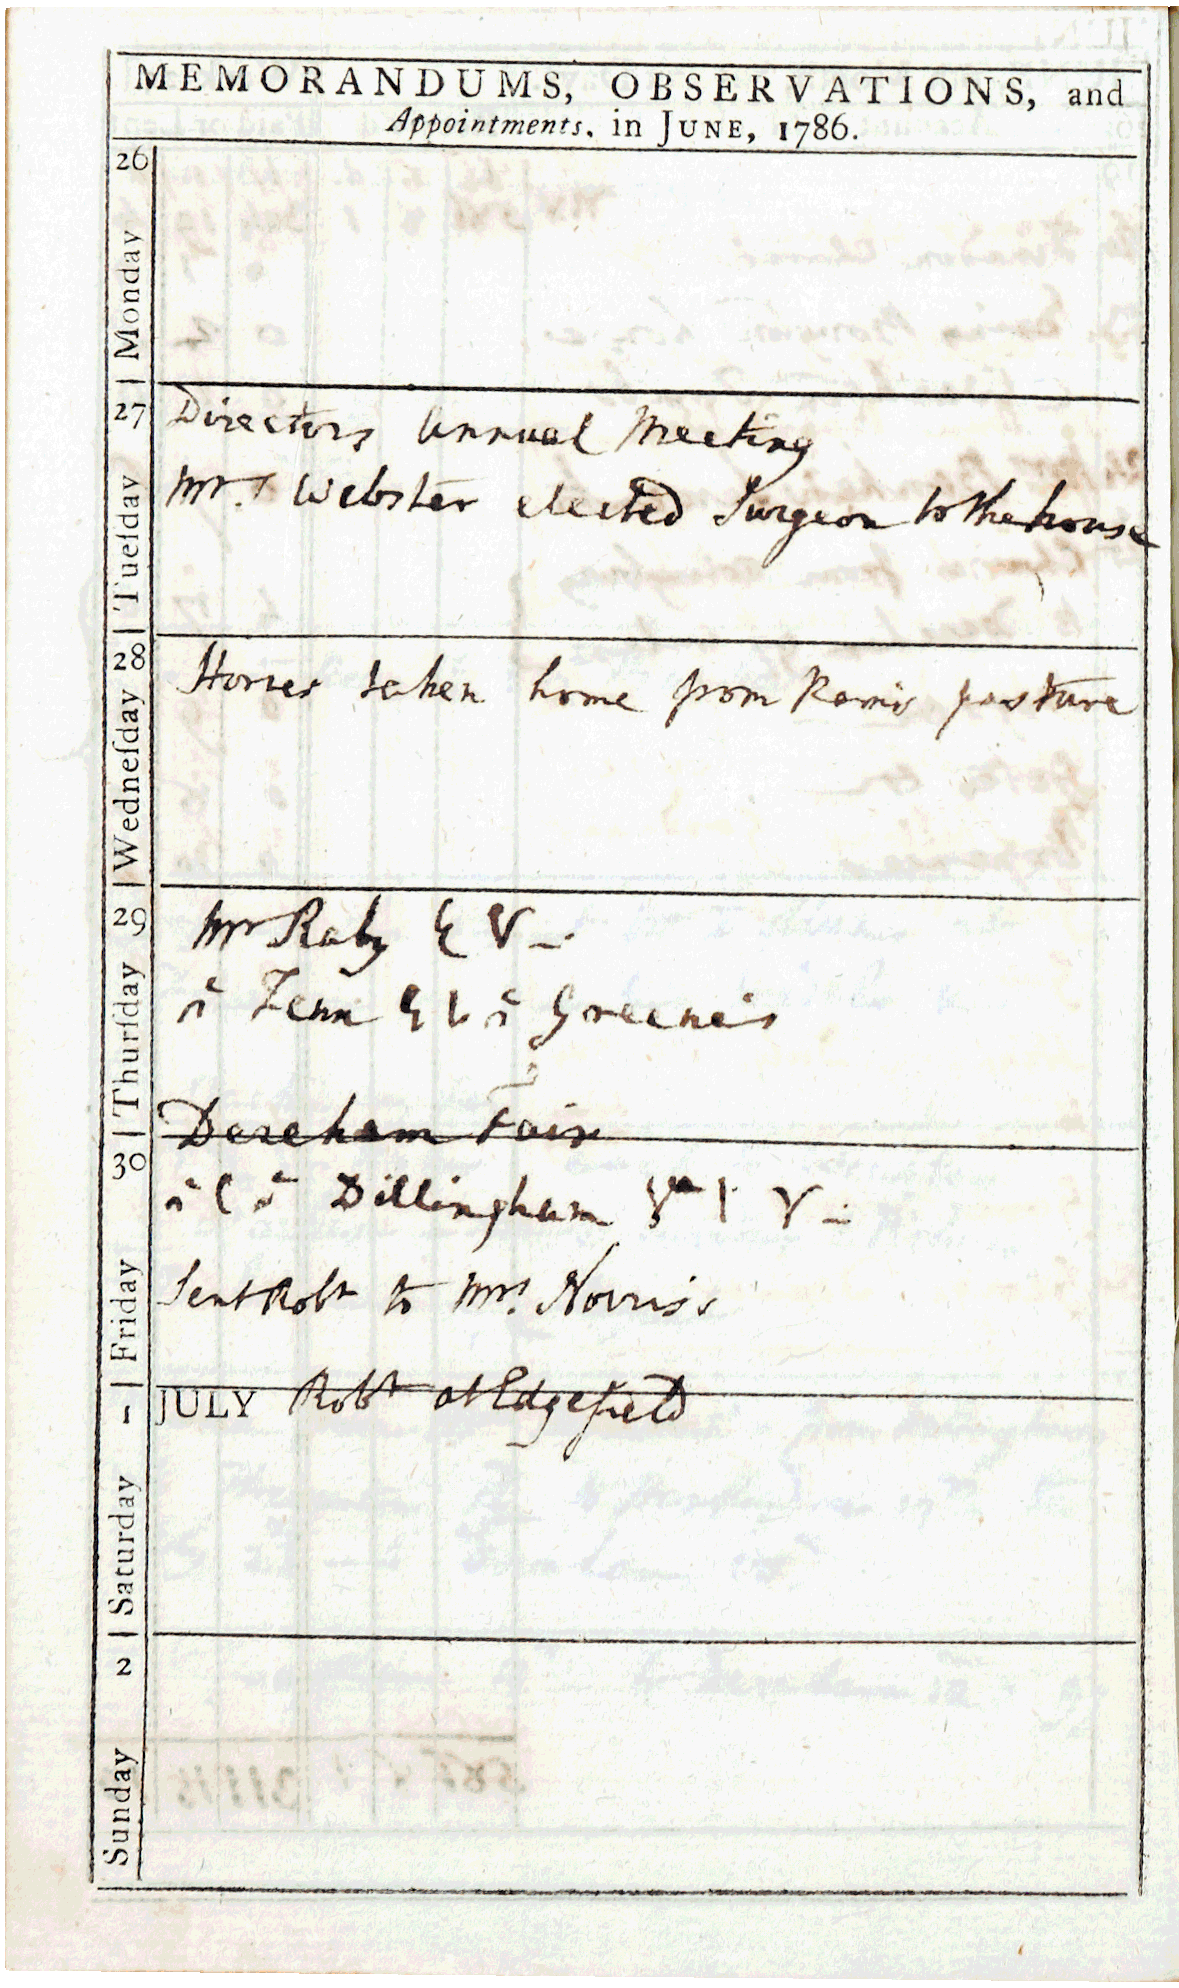 MEMORANDUMS, OBSERVATIONS, and
Appointments, in JUNE, 1786.
26
Monday
27
Tueſday
Directors Annual Meeting
Mr. Webster elected Surgeon to the house
28
Wedneſday
Horses taken home from pasture
29
Thurſday
Mr Raby
Fenn Greene's
Dereham Fair
30
Friday
Dillingham
Sent Robt to Mrs. Norris's
1
Saturday
JULY Robt at Edgefield
2
Sunday